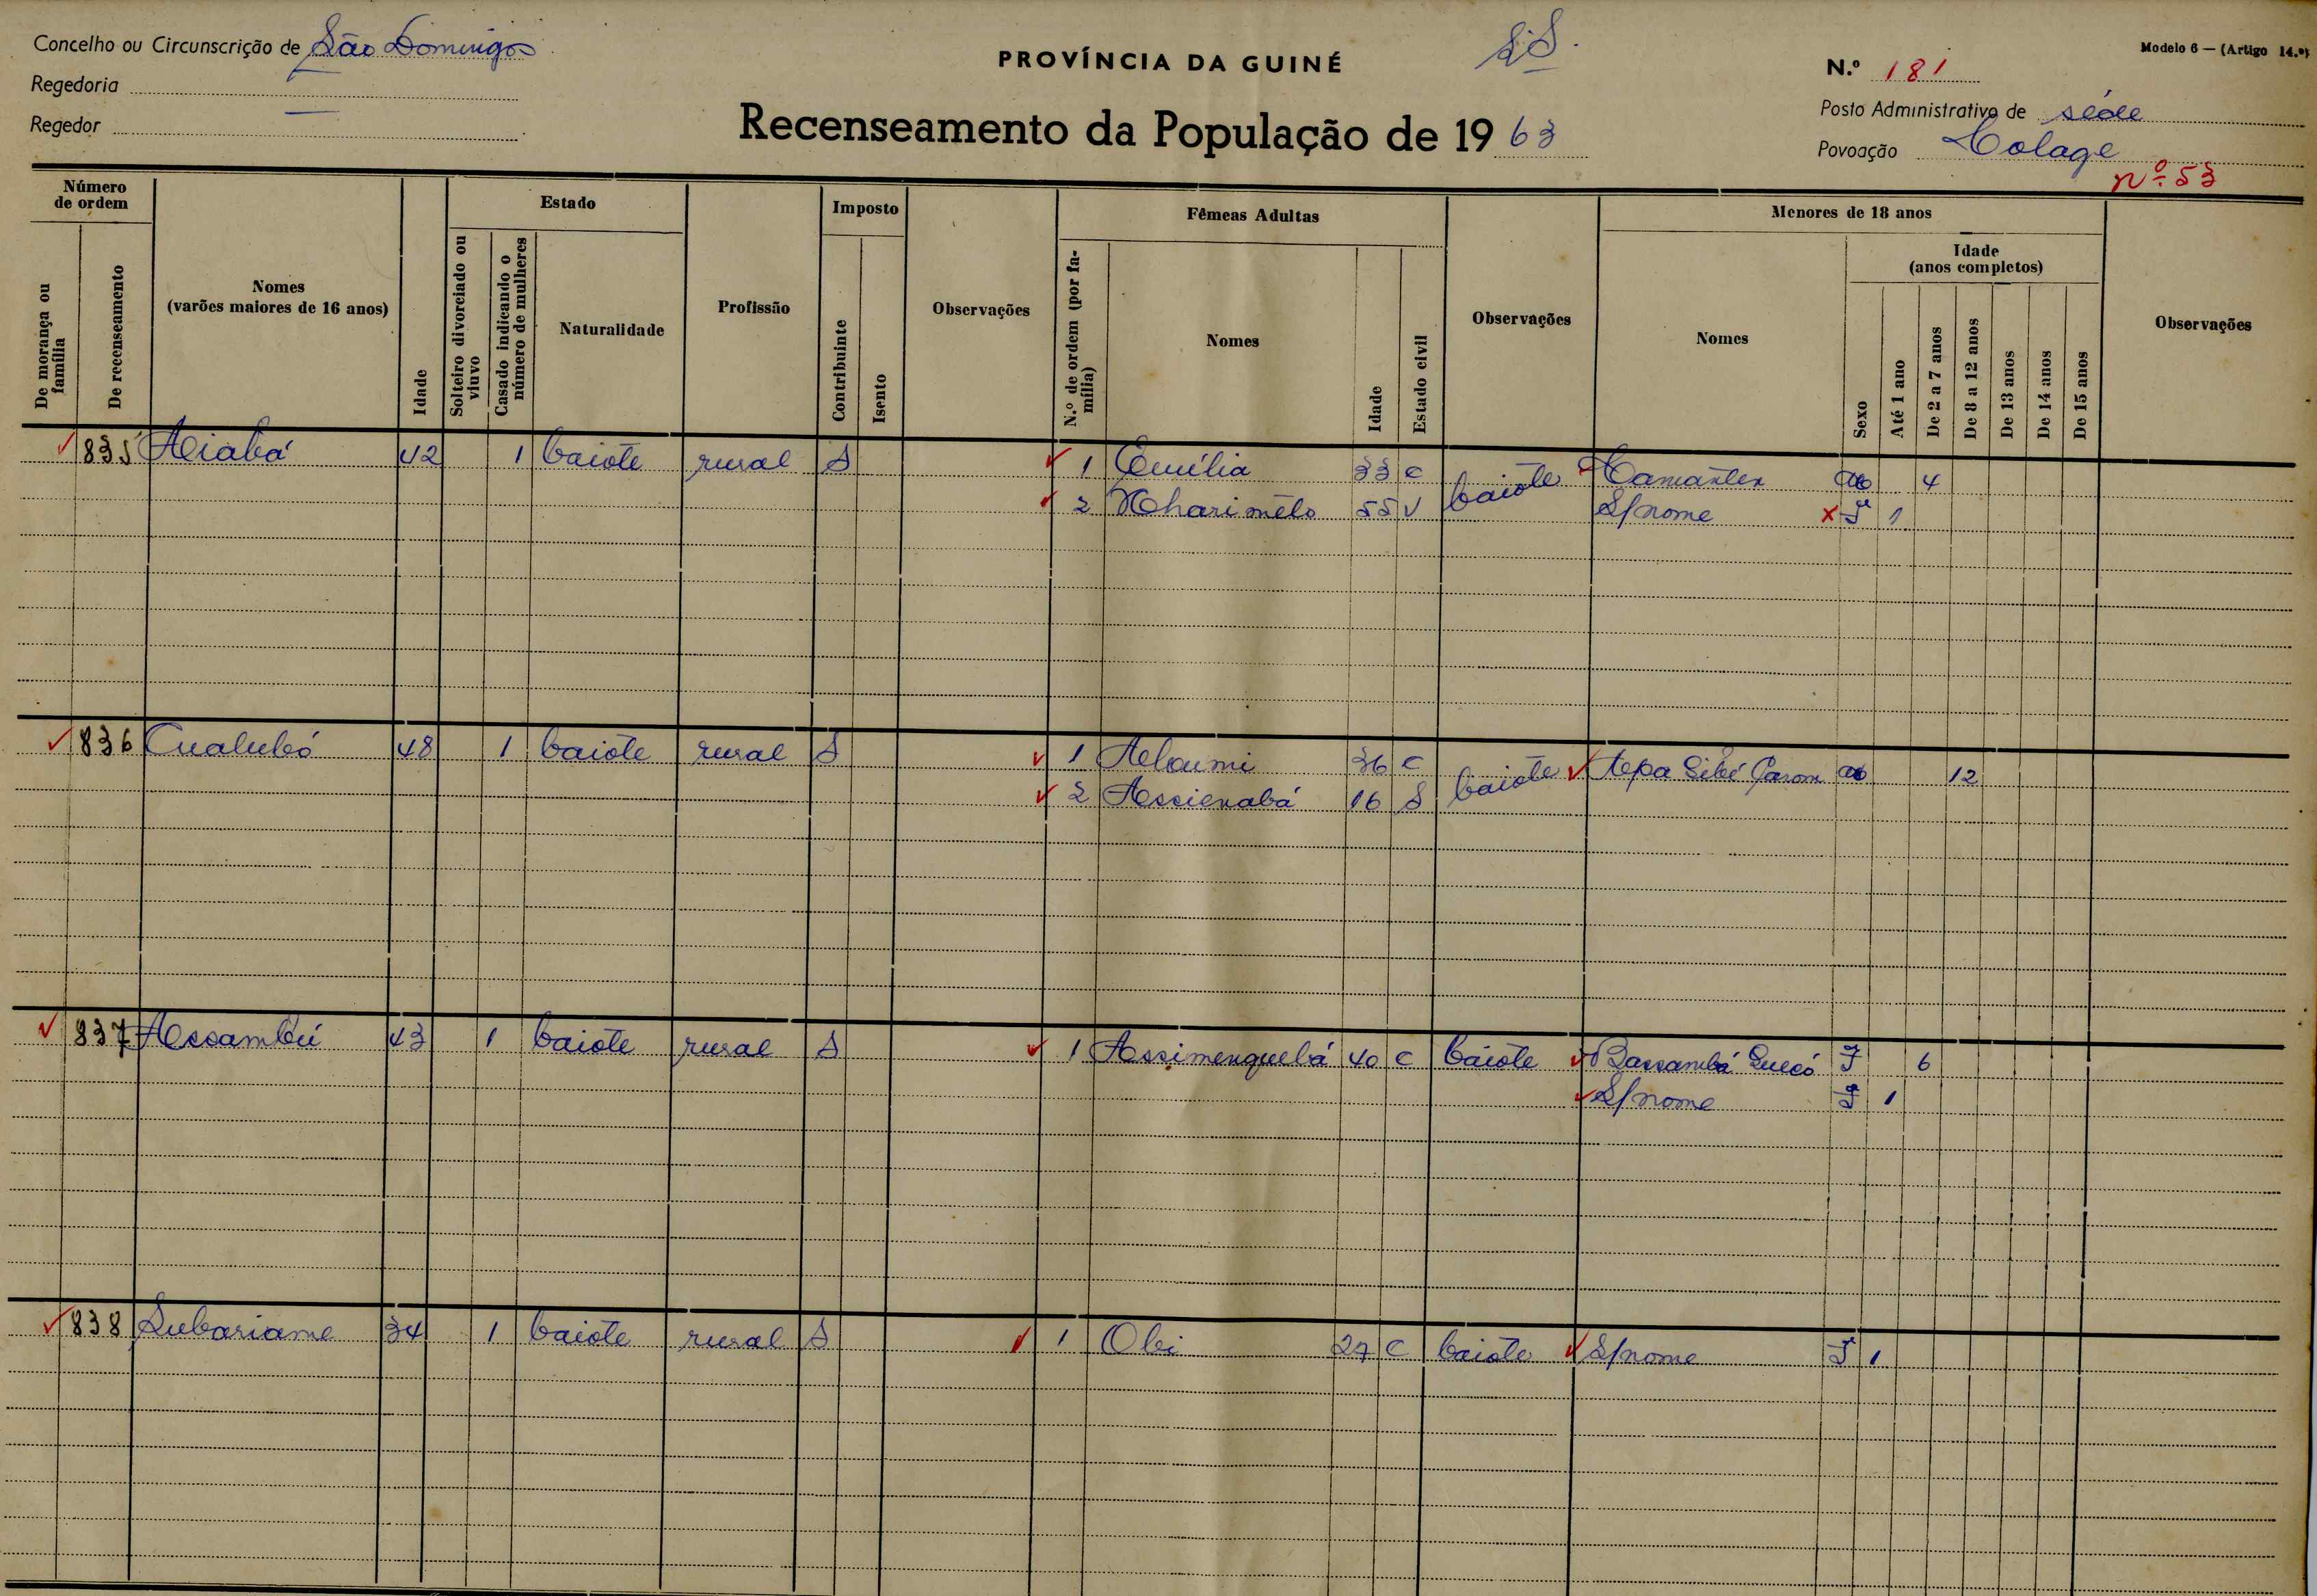 Concelho ou Circunscrição de São Domingos
Regedoria
Regedor
PROVÍNCIA DA GUINÉ
Recenseamento da População de 1963
S.D.
Modelo 6 — (Artigo 14.º)
N.º 181
Posto Administrativo de séde
Povoação Colage
nº 53
Número de ordem
De morança ou família
De recenseamento
Nomes
(varões maiores de 16 anos)
Idade
Estado
Solteiro divorciado ou viuvo
Casado indicando o número de mulheres
Naturalidade
Profissão
Imposto
Contribuinte
Isento
Observações
Fêmeas Adultas
N.º de ordem (por família)
Nomes
Idade
Estado civil
Observações
Menores de 18 anos
Nomes
Sexo
Idade
(anos completos)
Até 1 ano
De 2 a 7 anos
De 8 a 12 anos
De 13 anos
De 14 anos
De 15 anos
Observações
835 Aiabá 42 1 baiote rural S 1 Emília 33 c baiote 4
2 55 V S/nome F 1
836 48 1 baiote rural S 1 Aloumi 36 c baiote 12
2 Assienabá 16 S
837 Assambú 43 1 baiote rural S 1 Assimenquebá 40 c baiote Bassambá F 6
S/nome F 1
838 Subariame 34 1 baiote rural S 1 Obi 27 c baiote S/nome F 1